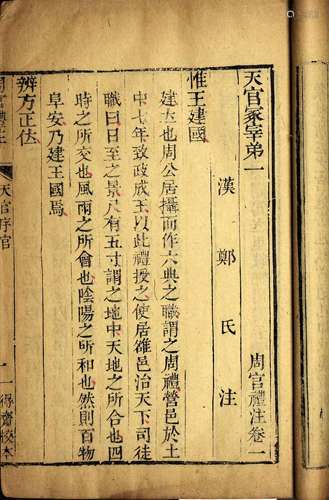 天官冢宰弟一
周官禮注卷一
漢鄭氏注
惟王建國
建立也周公居攝而作六典之職謂之周禮營邑於土
中七年致政成王以此禮授之使居雒邑治天下司徒
職曰日至之景尺有五寸謂之地中天地之所合也四
時之所交也風雨之所會也陰陽之所和也然則百物
阜安乃建王國焉
辨方正位
天官序官
一
得齋校本